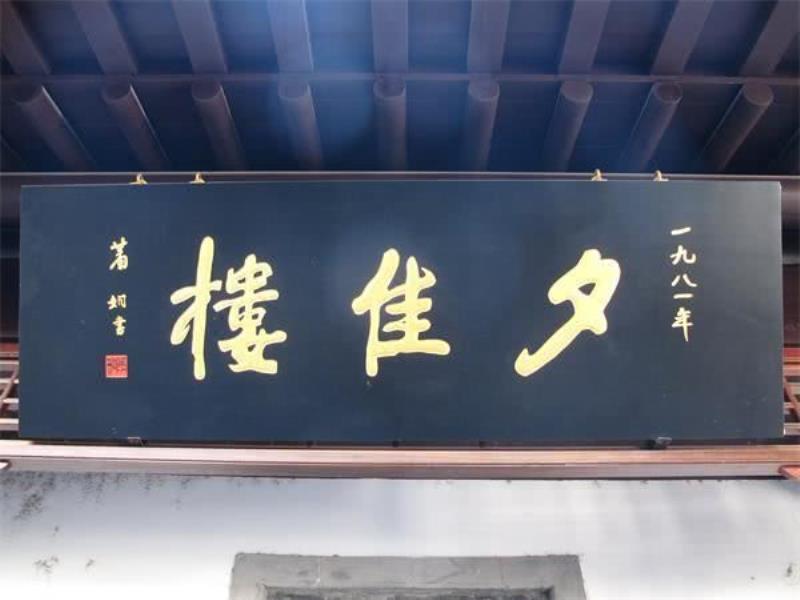 一九八一年
夕佳樓
蕭嫻書